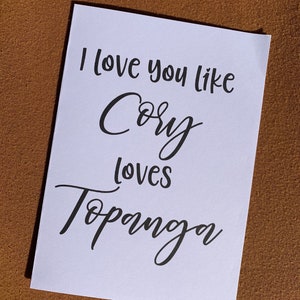 I love you like
Cory
loves
Topanga